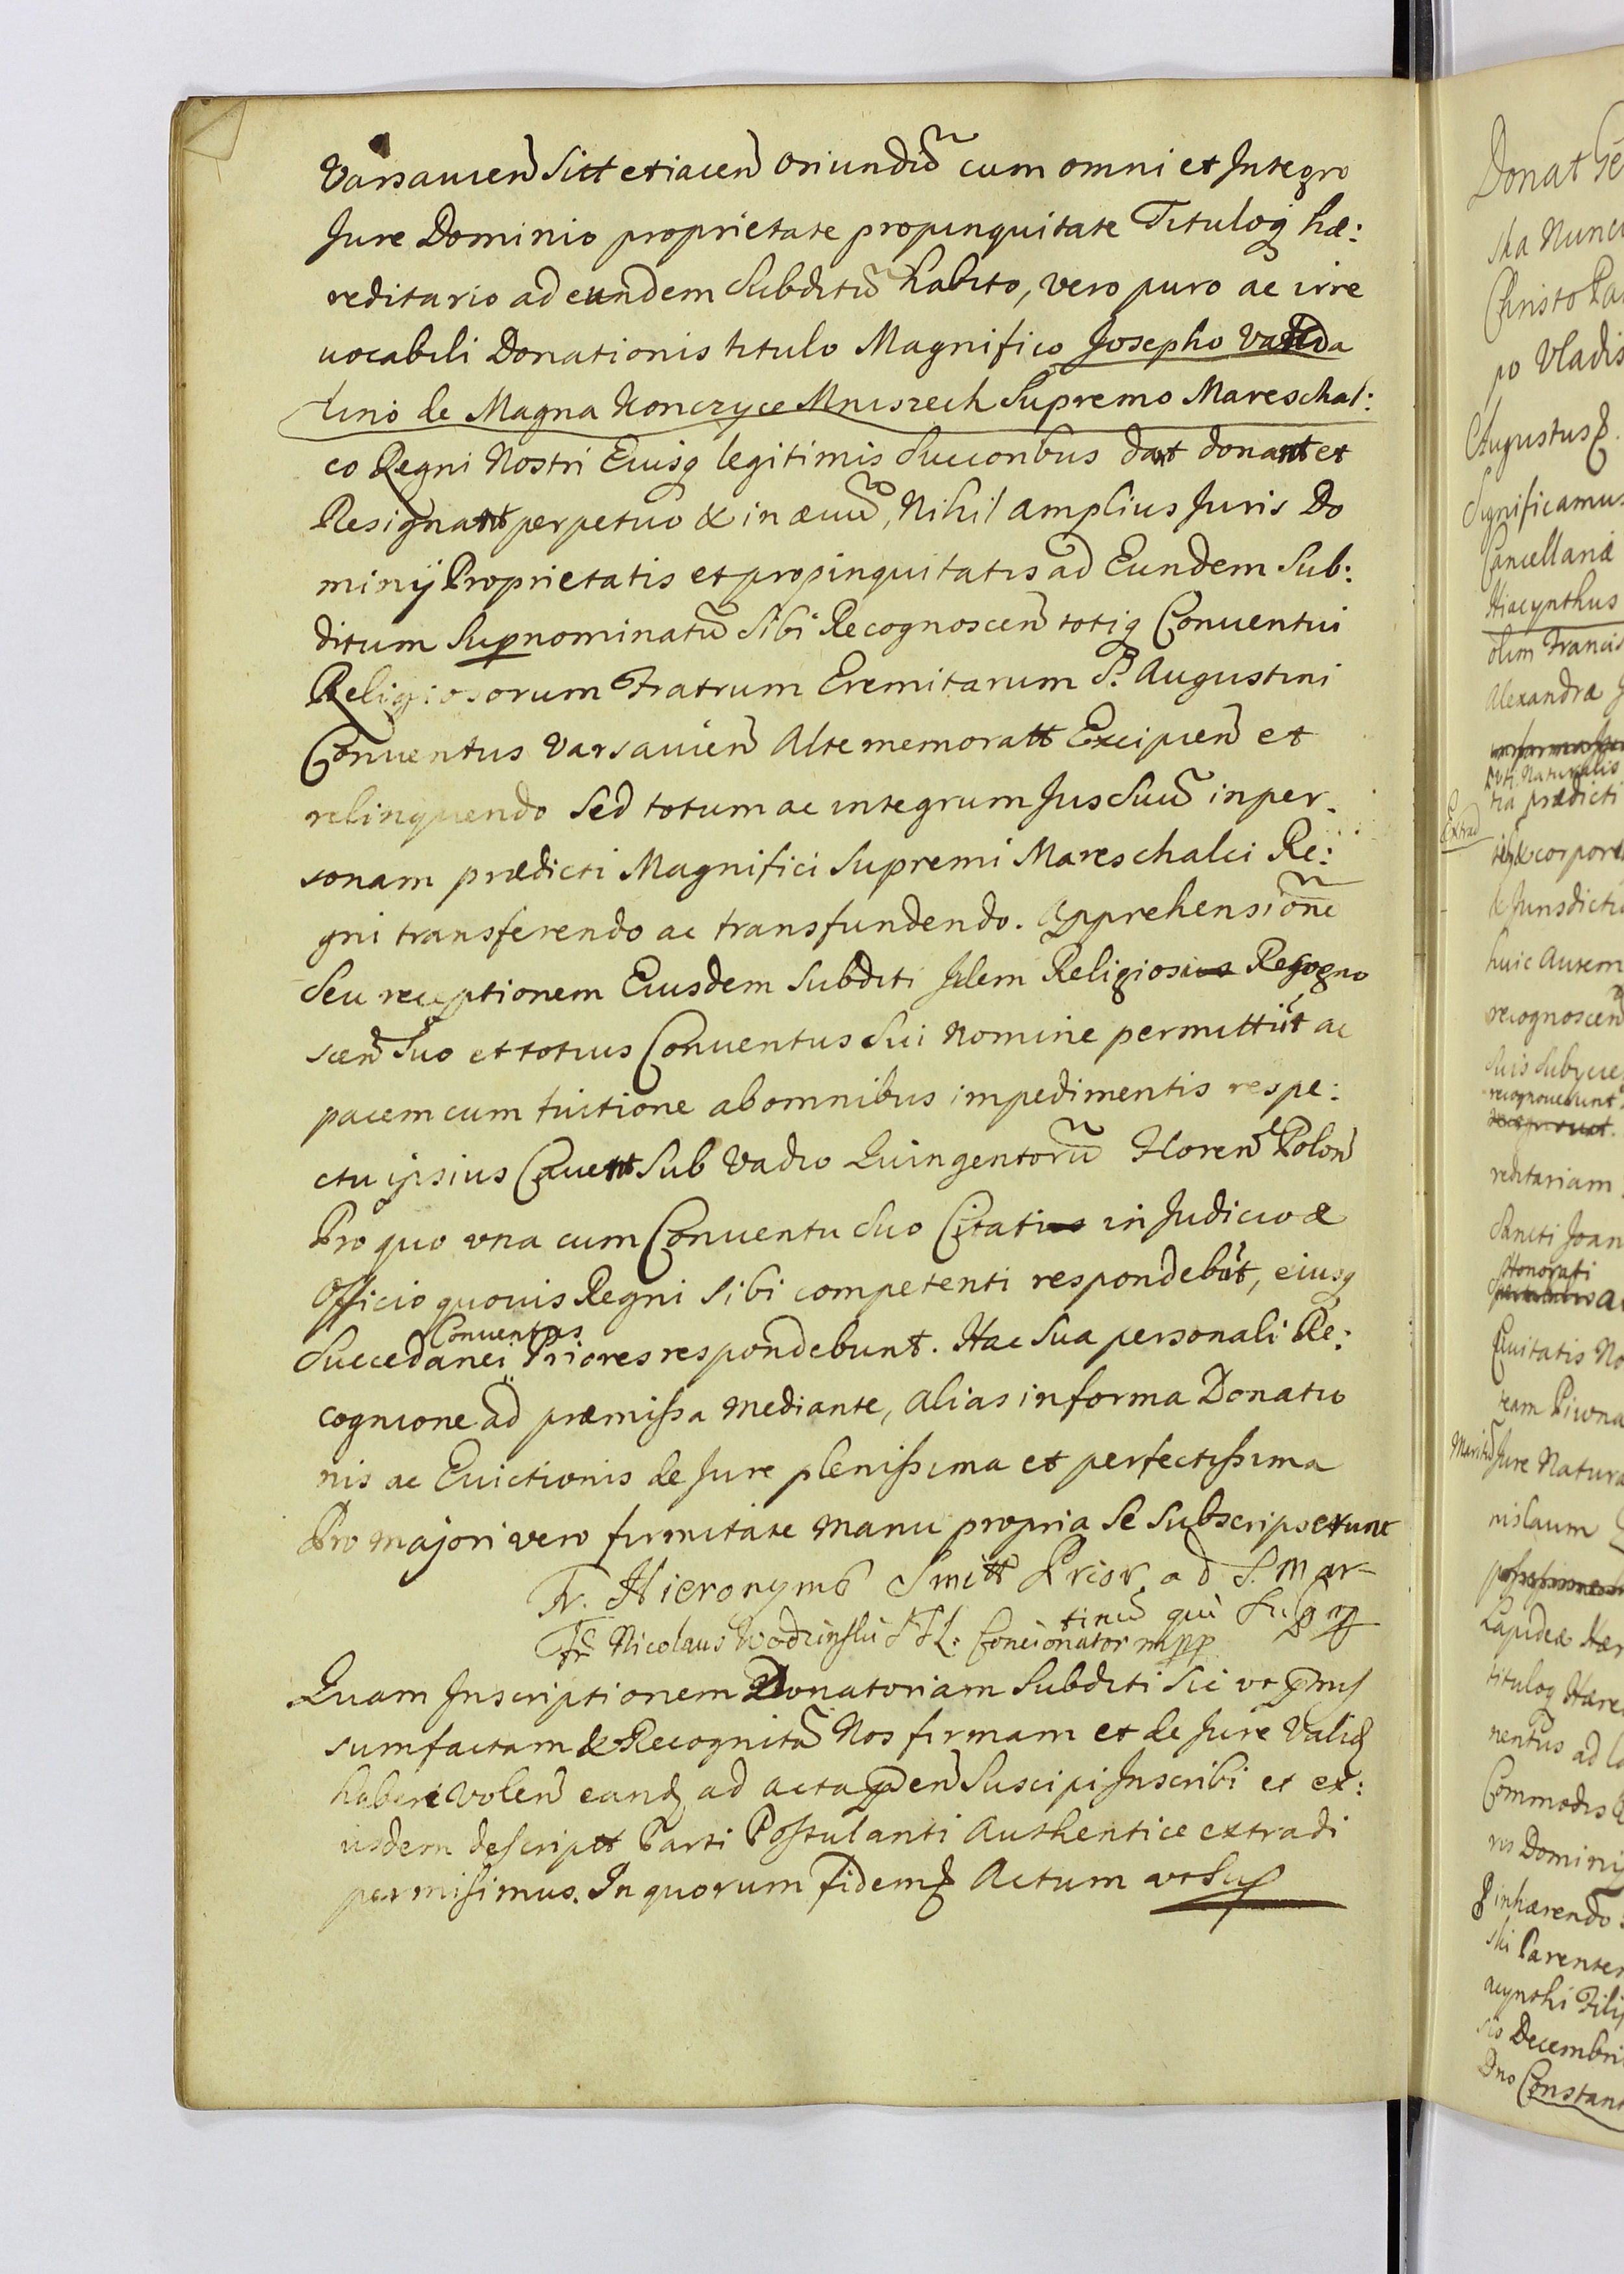 Varsauien Sitt et iacen oriundū cum omni et Integro
Jure Dominio proprietate propinquitate Tituloq hæ:
reditario ad eundem Subditū habito, vero puro ac irre
uocabili Donationis titulo Magnifico Josepho Vanda
lino de Magna Konczyce Mniszech Supremo Mareschal:
co Regni Nostri Eiusq legitimis Successoribus dant donant et
Resignant perpetuo & in æuū, Nihil amplius Juris Do
minij Proprietatis et propinquitatis ad Eundem Sub:
ditum Supnominatū Sibi Recognoscen totiq Conuentui
Religiosorum Fratrum Eremitarum S. Augustini
Conuentus Varsauien Alte memoratt Excipien et
relinquendo Sed totum ac integrum Jus Suū in per
sonam prædicti Magnifici Supremi Mareschalci Re:
gni transferendo ac transfundendo. Apprehensione
Seu receptionem Eiusdem Subditi Idem Religiosi Recogno
scen Suo et totius Conuentus Sui Nomine permittūt ac
pacem cum tuitione ab omnibus impedimentis respe:
ctu ipsius Cauent Sub Vadio Quingentorū Floren Polon
Pro quo vna cum Conuentu Suo Citati in Judicio æ
Officio quouis Regni Sibi competenti respondebūt, eiusq
Conuentus
Succedanei Priores respondebunt. Hac Sua personali Re:
cognicione ad præmissa mediante, alias in forma Donatio
nis ac Euictionis de Jure plenissima et perfectissima
Pro majori vero firmitate manu propria Se Subscripserunt
Fr. Hieronym9 Smitt Prior ad S. Mar-
tinū qui Supra
Fr Nicolaus Wodzinski STL. Concionator mpp
Quam Inscriptionem Donatoriam Subditi Sic vt pmis
sum factam & Recognitā Nos firmam et de Jure Valid
haberi Volen eand ad acta pden Suscipi Inscribi et ex:
iisdem descriptt Parti Postulanti Authentice extradi
permisimus. In quorum fidem Actum vt Sup
Donat
ska Nunc
Christo
po Vladis
Augustus
Significamus
Cancellariæ
Hiacynthus
olim Francis
Alexandræ
Naturalis
tia prædicti
Extrad
corpore
& Jurisdictio
huic Autem
recognoscen
recognouerunt
reditariam
Sancti Joan
Honorati
Ciuitatis No
team Piwna
Maritū
Jure Natura
nislaum
Lapideæ Hær
tituloq Hære
nentus ad
Commodis
ris Dominij
inhærendo
ski Parenter
acynthi Filij
Decembri
Dno Constan